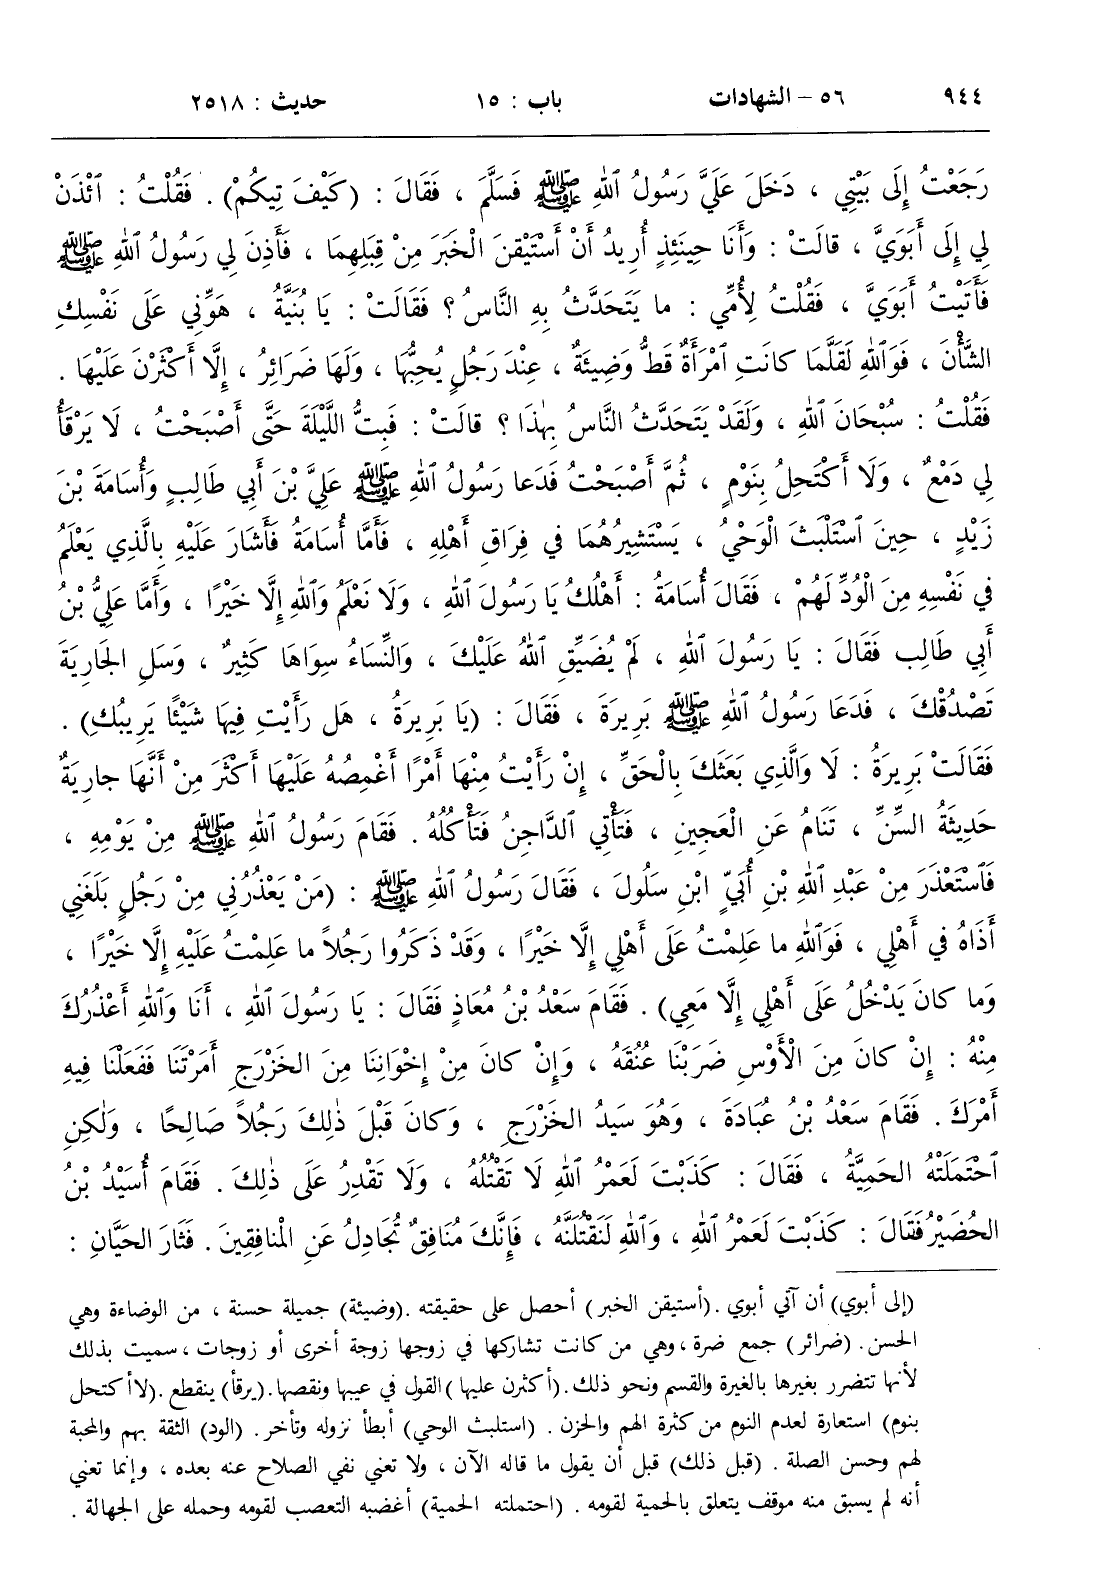 ٩٤٤ ٥٦ - الشهادات باب : ١٥ حديث : ٢٥١٨
رَجَعْتُ إِلَى بَيْتِي ، دَخَلَ عَلَيَّ رَسُولُ ٱللهِ ﷺ فَسَلَّمَ ، فَقَالَ : (كَيْفَ تِيكُمْ) . فَقُلْتُ : ٱئْذَنْ
لِي إِلَى أَبَوَيَّ ، قالَتْ : وَأَنَا حِينَئِذٍ أُرِيدُ أَنْ أَسْتَيْقِنَ الْخَبَرَ مِنْ قِبَلِهِمَا ، فَأَذِنَ لِي رَسُولُ ٱللهِ ﷺ
فَأَتَيْتُ أَبَوَيَّ ، فَقُلْتُ لِأُمِّي : ما يَتَحَدَّثُ بِهِ النَّاسُ ؟ فَقَالَتْ : يَا بُنَيَّةُ ، هَوِّنِي عَلَى نَفْسِكِ
الشَّأْنَ ، فَوَٱللهِ لَقَلَّمَا كانَتِ ٱمْرَأَةٌ قَطُّ وَضِيئَةٌ ، عِنْدَ رَجُلٍ يُحِبُّهَا ، وَلَهَا ضَرَائِرُ ، إِلَّا أَكْثَرْنَ عَلَيْهَا .
فَقُلْتُ : سُبْحَانَ ٱللهِ ، وَلَقَدْ يَتَحَدَّثُ النَّاسُ بِهٰذَا ؟ قالَتْ : فَبِتُّ اللَّيْلَةَ حَتَّى أَصْبَحْتُ ، لَا يَرْقَأُ
لِي دَمْعٌ ، وَلَا أَكْتَحِلُ بِنَوْمٍ ، ثُمَّ أَصْبَحْتُ فَدَعا رَسُولُ ٱللهِ ﷺ عَلِيَّ بْنَ أَبِي طَالِبٍ وَأُسَامَةَ بْنَ
زَيْدٍ ، حِينَ ٱسْتَلْبَثَ الْوَحْيُ ، يَسْتَشِيرُهُمَا في فِرَاقِ أَهْلِهِ ، فَأَمَّا أُسَامَةُ فَأَشَارَ عَلَيْهِ بِالَّذِي يَعْلَمُ
في نَفْسِهِ مِنَ الْوُدِّ لَهُمْ ، فَقَالَ أُسَامَةُ : أَهْلُكَ يَا رَسُولَ ٱللهِ ، وَلَا نَعْلَمُ وَٱللهِ إِلَّا خَيْرًا ، وَأَمَّا عَلِيُّ بْنُ
أَبِي طَالِب فَقَالَ : يَا رَسُولَ ٱللهِ ، لَمْ يُضَيِّقِ ٱللهُ عَلَيْكَ ، وَالنِّسَاءُ سِوَاهَا كَثِيرٌ ، وَسَلِ الجَارِيَةَ
تَصْدُقْكَ ، فَدَعَا رَسُولُ ٱللهِ ﷺ بَرِيرَةَ ، فَقَالَ : (يَا بَرِيرَةُ ، هَل رَأَيْتِ فِيهَا شَيْئًا يَرِيبُكِ) .
فَقَالَتْ بَرِيرَةُ : لَا وَالَّذِي بَعَثَكَ بِالْحَقِّ ، إِنْ رَأَيْتُ مِنْهَا أَمْرًا أَغْمِصُهُ عَلَيْهَا أَكْثَرَ مِنْ أَنَّهَا جارِيَةٌ
حَدِيثَةُ السِّنِّ ، تَنَامُ عَنِ الْعَجِينِ ، فَتَأْتِي ٱلدَّاجِنُ فَتَأْكُلُهُ . فَقَامَ رَسُولُ ٱللهِ ﷺ مِنْ يَوْمِهِ ،
فَٱسْتَعْذَرَ مِنْ عَبْدِ ٱللهِ بْنِ أُبَيٍّ ابْنِ سَلُولَ ، فَقَالَ رَسُولُ ٱللهِ ﷺ : (مَنْ يَعْذُرُنِي مِنْ رَجُلٍ بَلَغَنِي
أَذَاهُ في أَهْلِي ، فَوَٱللهِ ما عَلِمْتُ عَلَى أَهْلِي إِلَّا خَيْرًا ، وَقَدْ ذَكَرُوا رَجُلاً ما عَلِمْتُ عَلَيْهِ إِلَّا خَيْرًا ،
وَما كانَ يَدْخُلُ عَلَى أَهْلِي إِلَّا مَعِي) . فَقَامَ سَعْدُ بْنُ مُعَاذٍ فَقَالَ : يَا رَسُولَ ٱللهِ ، أَنَا وَٱللهِ أَعْذُرُكَ
مِنْهُ : إِنْ كانَ مِنَ الْأَوْسِ ضَرَبْنَا عُنُقَهُ ، وَإِنْ كانَ مِنْ إِخْوَانِنَا مِنَ الخَزْرَجِ أَمَرْتَنَا فَفَعَلْنَا فِيهِ
أَمْرَكَ . فَقَامَ سَعْدُ بْنُ عُبَادَةَ ، وَهُوَ سَيِّدُ الخَزْرَجِ ، وَكانَ قَبْلَ ذٰلِكَ رَجُلاً صَالِحًا ، وَلٰكِنِ
ٱحْتَمَلَتْهُ الحَمِيَّةُ ، فَقَالَ : كَذَبْتَ لَعَمْرُ ٱللهِ لَا تَقْتُلُهُ ، وَلَا تَقْدِرُ عَلَى ذٰلِكَ . فَقَامَ أُسَيْدُ بْنُ
الحُضَيْرُ فَقَالَ : كَذَبْتَ لَعَمْرُ ٱللهِ ، وَٱللهِ لَنَقْتُلَنَّهُ ، فَإِنَّكَ مُنَافِقٌ تُجَادِلُ عَنِ الْمُنَافِقِينَ . فَثَارَ الحَيَّانِ :
(إلى أبوي) أن آتي أبوي . (أستيقن الخبر) أحصل على حقيقته . (وضيئة) جميلة حسنة ، من الوضاءة وهي
الحسن . (ضرائر) جمع ضرة ، وهي من كانت تشاركها في زوجها زوجة أخرى أو زوجات ، سميت بذلك
لأنها تتضرر بغيرها بالغيرة والقسم ونحو ذلك . (أكثرن عليها) القول في عيبها ونقصها . (يرقأ) ينقطع . (لا أكتحل
بنوم) استعارة لعدم النوم من كثرة الهم والحزن . (استلبث الوحي) أبطأ نزوله وتأخر . (الود) الثقة بهم والمحبة
لهم وحسن الصلة . (قبل ذلك) قبل أن يقول ما قاله الآن ، ولا تعني نفي الصلاح عنه بعده ، وإنما تعني
أنه لم يسبق منه موقف يتعلق بالحمية لقومه . (احتملته الحمية) أغضبه التعصب لقومه وحمله على الجهالة .